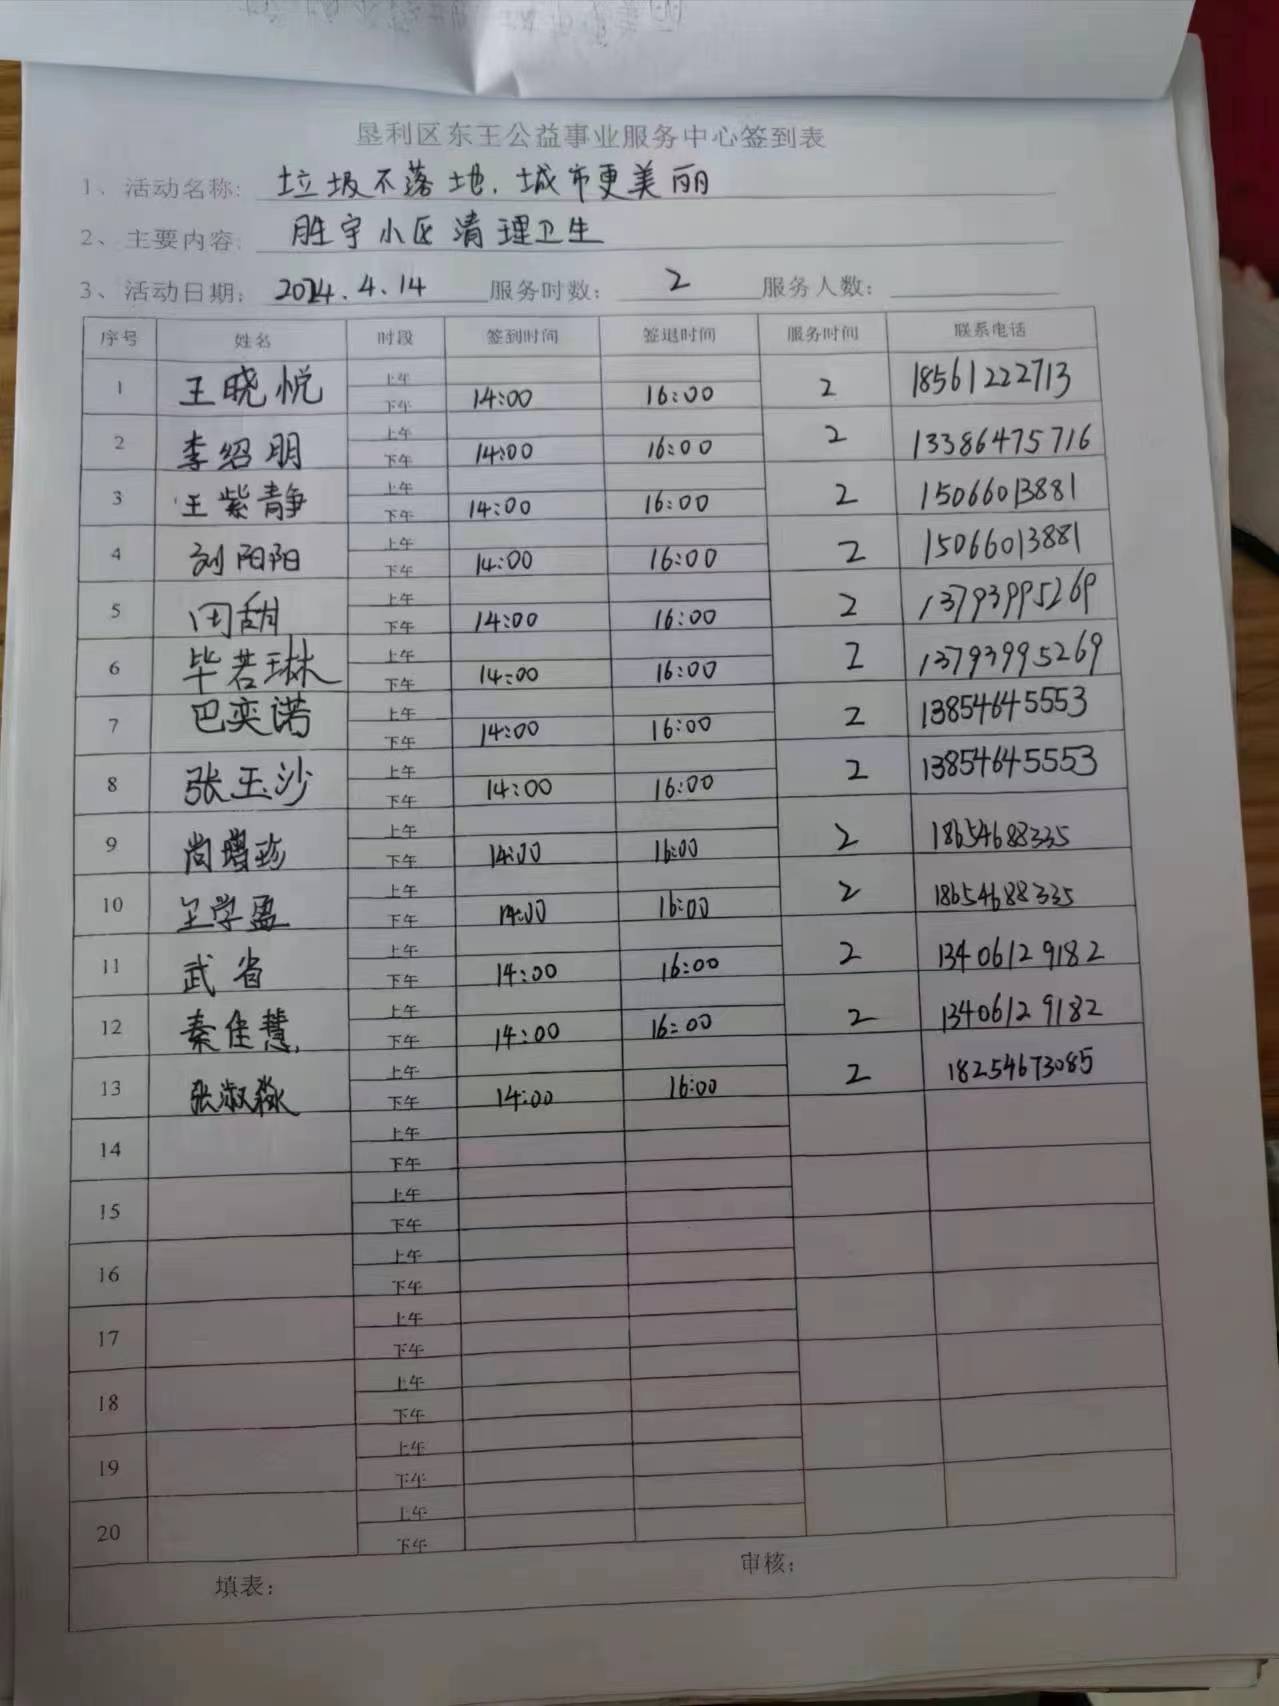 垦利区东王公益事业服务中心签到表
1、活动名称: 垃圾不落地.城市更美丽
2、主要内容: 胜宇小区清理卫生
3、活动日期: 2024.4.14 服务时数: 2 服务人数:
序号 姓名 时段 签到时间 签退时间 服务时间 联系电话
1 王晓悦 上午 下午 14:00 16:00 2 18561222713
2 李绍朋 上午 下午 14:00 16:00 2 13386475716
3 王紫静 上午 下午 14:00 16:00 2 15066013881
4 刘阳阳 上午 下午 14:00 16:00 2 15066013881
5 田甜 上午 下午 14:00 16:00 2 13793995269
6 毕若琳 上午 下午 14:00 16:00 2 13793995269
7 巴奕诺 上午 下午 14:00 16:00 2 13854645553
8 张玉沙 上午 下午 14:00 16:00 2 13854645553
9 尚增珍 上午 下午 14:00 16:00 2 18654688335
10 王学盈 上午 下午 14:00 16:00 2 18654688335
11 武省 上午 下午 14:00 16:00 2 13406129182
12 秦佳慧 上午 下午 14:00 16:00 2 13406129182
13 张淑淼 上午 下午 14:00 16:00 2 18254673085
14 上午 下午
15 上午 下午
16 上午 下午
17 上午 下午
18 上午 下午
19 上午 下午
20 上午 下午
填表: 审核: